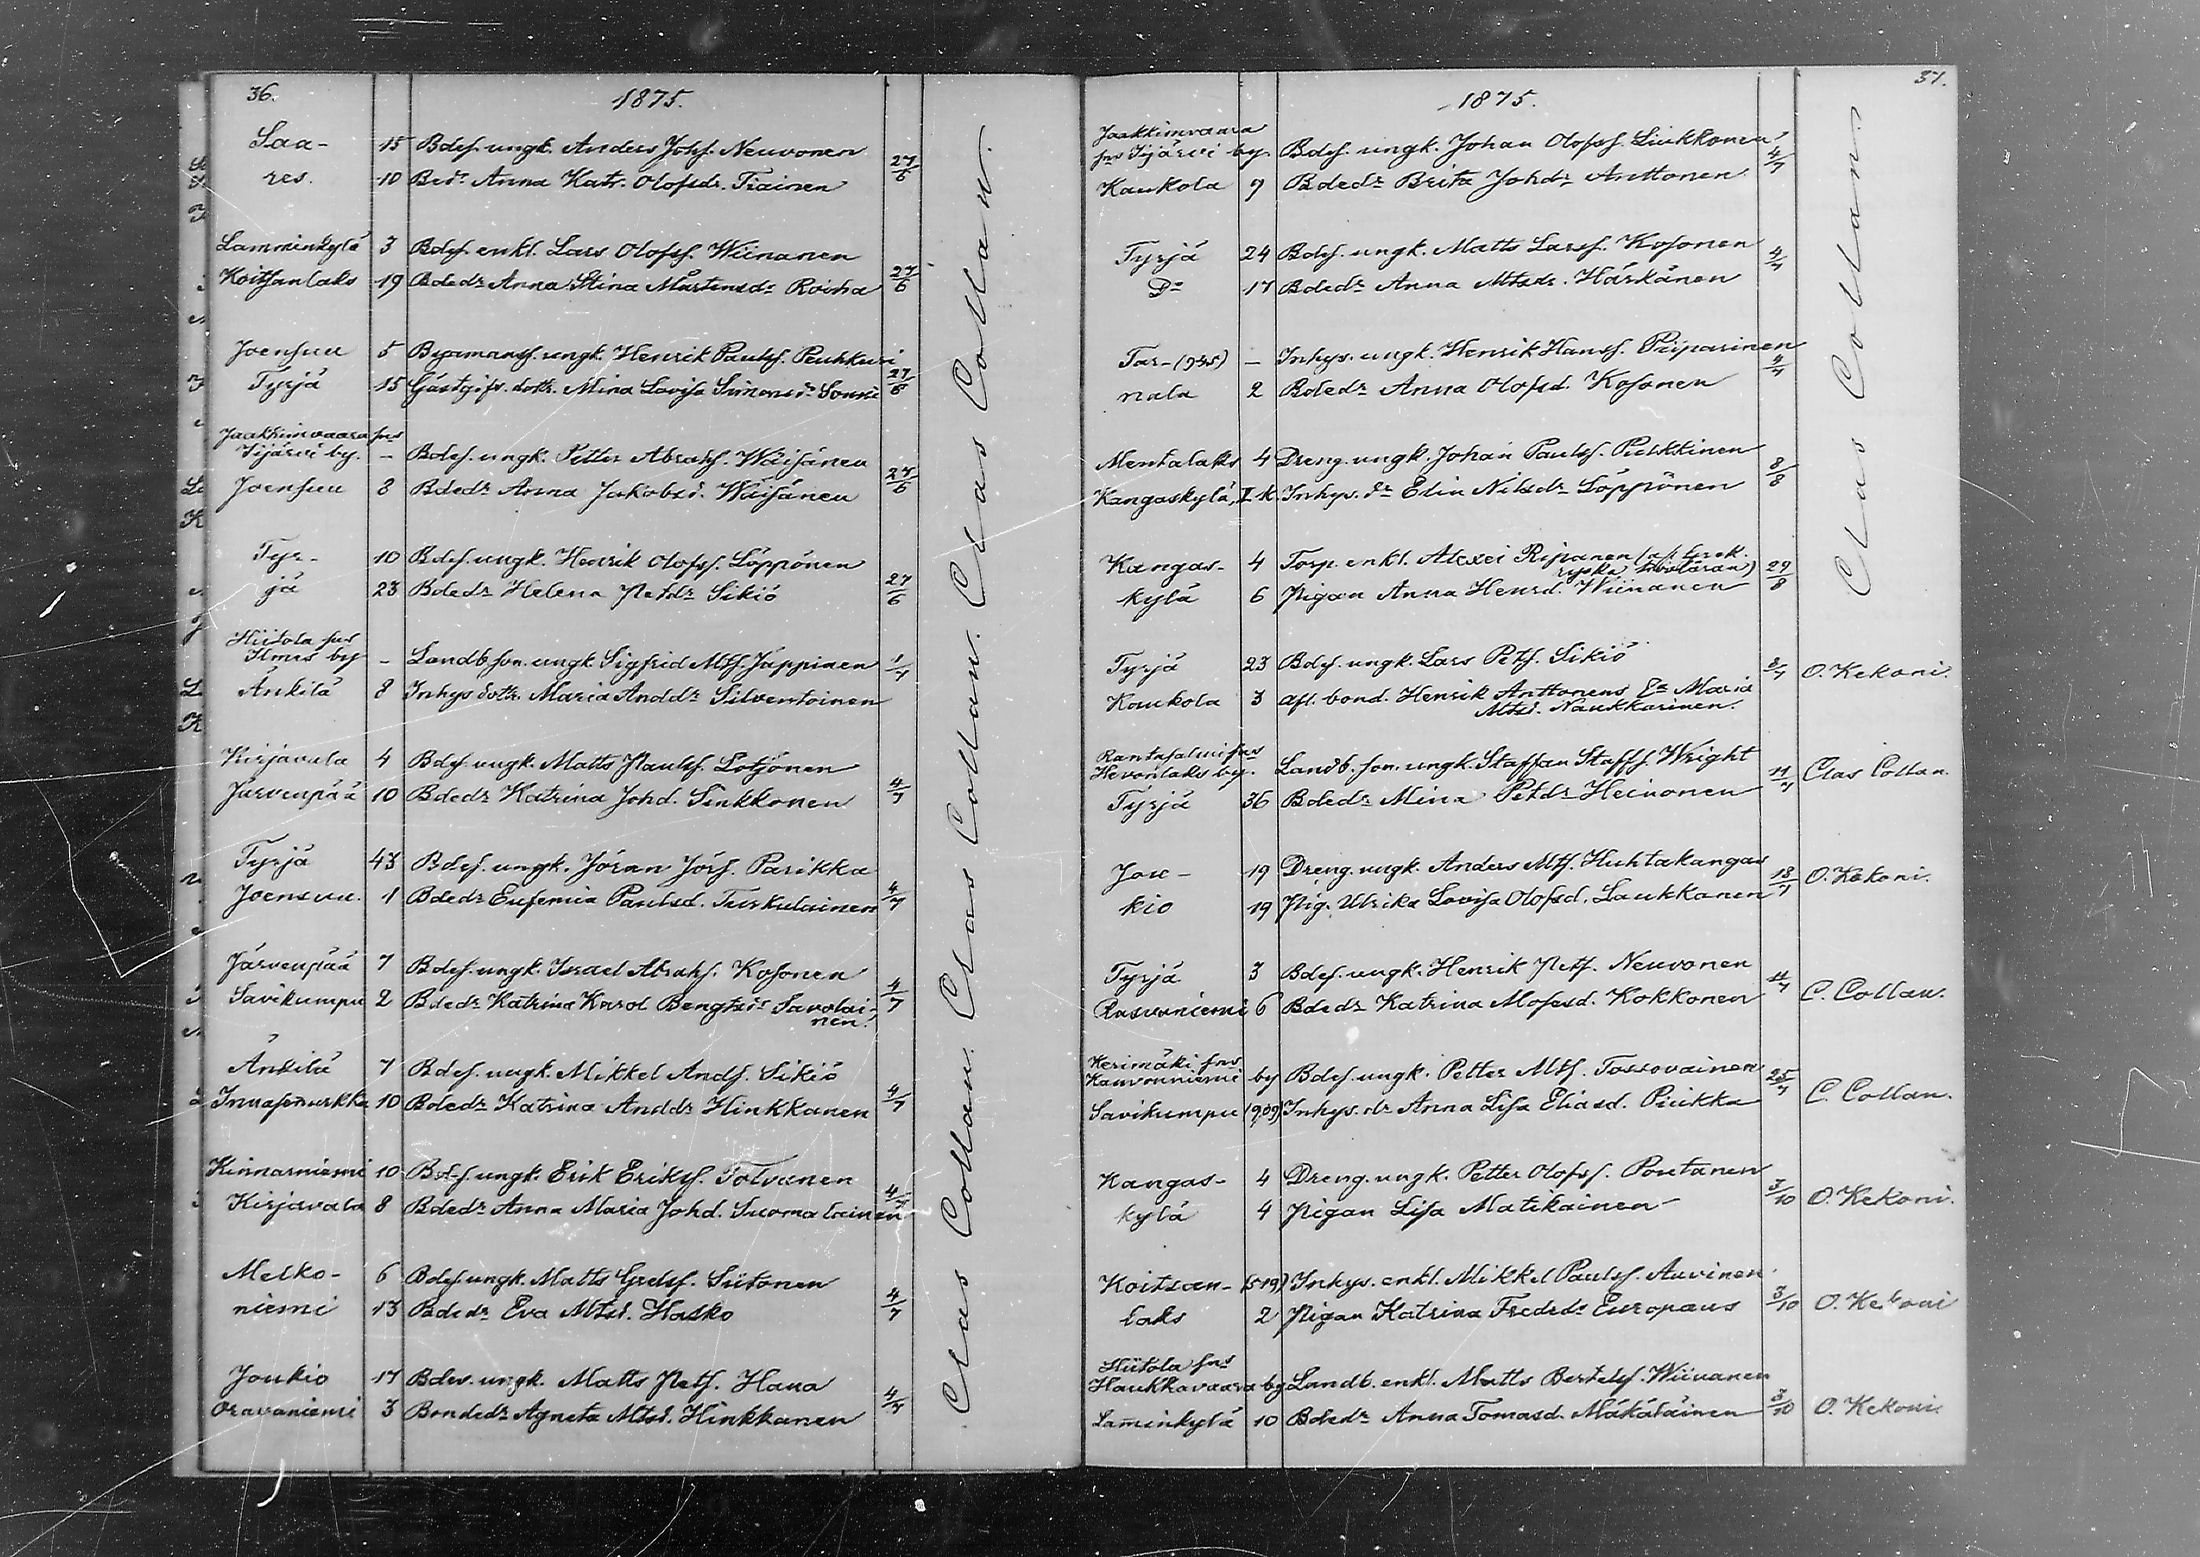 36.
1875.
Saa- 15 Bdes. ungk. Anders Johs. Neuvonen 27/6
res. 10 Bedr Anna Katr. Olofsdr. Tiainen
Lamminkylä 3 Bdes. enkl. Lars Olofss. Wiinanen 27/6
Koitsanlaks 19 Bdedr Anna Stina Mårtensdr Roiha
Joensuu 5 Bysmanss. ungk. Henrik Paulss. Peuhkuri 27/6
Tyrjä 15 Gästgifv. dottr. Mina Lovisa Simonsdr Sonni
Jaakkimvaara sns
Iijärvi by. - Bdes. ungk. Petter Abrahs. Wäisänen 27/6
Joensuu 8 Bdedr Anna Jakobsd. Wäisänen
Tyr- 10 Bdes. ungk. Henrik Olofss. Löppönen 27/6
jä 23 Bdedr Helena Petdr Sikiö
Hiitola sns
Ilmis by - Landb. son. ungk. Sigfrid Mts. Jäppinen 1/7
Änkilä 8 Inhys dottr. Maria Anddr Silventoinen
Kirjavala 4 Bdes. ungk. Matts Paulss. Lötjönen 4/7
Järvenpää 10 Bdedr Katrina Johd. Sinkkonen
Tyrjä 43 Bdes. ungk. Jöran Jörs. Parikka 4/7
Joensuu. 1 Bdedr Eufemia Paulsd. Turkulainen
Järvenpää 7 Bdes. ungk. Israel Abrahs. Kosonen 4/7
Savikumpu 2 Bdedr Katrina Karol Bengtsdr Savolai-
nen.
Änkilä 7 Bdes. ungk. Mikkel Ands. Sikiö 4/7
Innasenurkka 10 Bdedr Katrina Anddr Hinkkanen
Kinnarniemi 10 Bdes. ungk. Erik Erikss. Tolvanen 4/7
Kirjavala 8 Bdedr Anna Maria Johd. Suomalainen
Melko- 6 Bdes. ungk. Matts Grelss. Siitonen 4/7
niemi 13 Bdedr Eva Mtsd. Hasko
Joukio 17 Bdes. ungk. Matts Pets. Hava 4/7
Oravaniemi 3 Bondedr Agneta Mtsd. Hinkkanen
Clas Collan. Clas Collan. Clas Collan. Clas Collan.
37.
1875.
Jaakkimvaara
sns Iijärvi by. Bdes. ungk. Johan Olofss. Sinkkonen 4/7
Kaukola 9 Bdedr Brita Johdr Anttonen
Tyrjä 24 Bdes. ungk. Matts Larss. Kosonen 4/7
Do 17 Bdedr Anna Mtsdr. Härkänen
Tar- (945) - Inhys. ungk. Henrik Hanss. Piiparinen 4/7
nala 2 Bdedr Anna Olofsd. Kosonen
Mentalaks 4 Dreng. ungk. Johan Paulss. Pulkkinen 8/8
Kangaskylä, II k. Inhys. dr Elin Nilsdr Löppönen
Kangas- 4 Torp. enkl. Alexei Ripanen (af Grek.
ryska trosläran) 29/8
kylä 6 Pigan Anna Hensd. Wiinanen
Tyrjä 23 Bdes. ungk. Lars Pets. Sikiö 8/7 O. Kekoni.
Kaukola 3 afl. bond. Henrik Anttonens Ea Maria
Mtsd. Naukkarinen.
Rantasalmi sns
Hevonlaks by. Landb. son. ungk. Staffan Staffs. Wright 11/7 Clas Collan.
Tyrjä 36 Bdedr Mina Petdr Heinonen
Jou- 19 Dreng. ungk. Anders Mts. Huhtakangas 18/7 O. Kekoni.
kio 19 Pig. Ulrika Lovisa Olofsd. Laukkanen
Tyrjä 3 Bdes. ungk. Henrik Pets. Neuvonen 11/7
Rasvaniemi 6 Bdedr Katrina Mosesd. Kokkonen C. Collan.
Kerimäki sns
Kauvonniemi by Bdes. ungk. Petter Mts. Tossavainen 25/7 C. Collan.
Savikumpu (909) Inhys. dr Anna Lisa Eliasd. Puikka
Kangas- 4 Dreng. ungk. Petter Olofss. Poutanen 3/10 O. Kekoni.
kylä 4 Pigan Lisa Matikainen
Koitsan- (519) Inhys. enkl. Mikkel Paulss. Auvinen
laks 2 Pigan Katrina Fredsdr Europaeus 3/10 O. Kekoni
Hiitola sns
Haukkavaara by Landb. enkl. Matts Bertelss. Wiinanen
Laminkylä 10 Bdedr Anna Tomasd. Mäkäläinen 3/10 O. Kekoni.
Clas Collan.